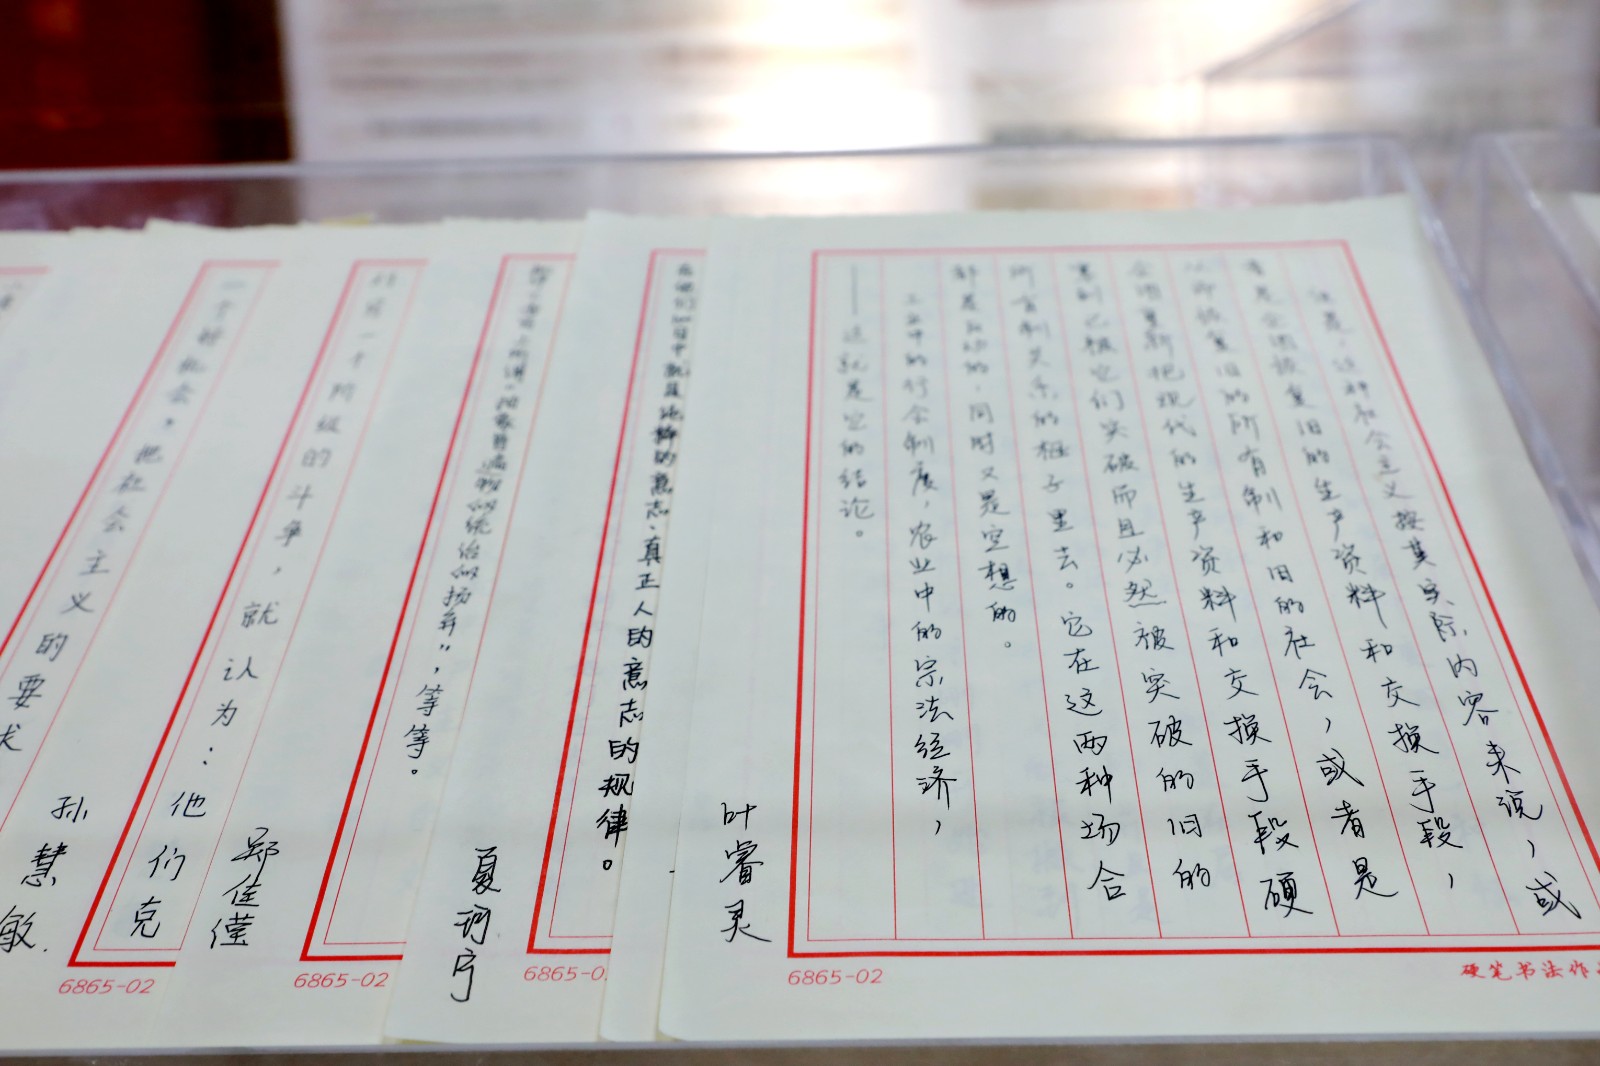 但是，这种社会主义按其实际内容来说，或
者是企图恢复旧的生产资料和交换手段，
从而恢复旧的所有制和旧的社会，或者是
企图重新把现代的生产资料和交换手段硬
塞到已被它们突破而且必然被突破的旧的
所有制关系的框子里去。它在这两种场合
都是反动的，同时又是空想的。
工业中的行会制度，农业中的宗法经济，
——这就是它的结论。
叶睿灵
6865-02
硬笔书法作
真正人的意志的规律。
6865-0
统治的扬弃”，等等。
6865-02
一个阶级的斗争，就认为：他们克
郑佳莹
6865-02
机会，把社会主义的要求
孙慧敏